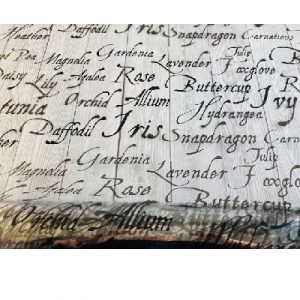 Heather Daffodil Iris Snapdragon Carnations
Pea Magnolia Gardenia Lavender Tulip
Daisy Lily Azalea Rose Foxglove
Orchid Allium Buttercup Ivy
Petunia Hydrangea
Daffodil Iris Snapdragon
Gardenia Tulip
Magnolia Lavender Foxglove
Azalea Rose
Buttercup
Orchid Allium